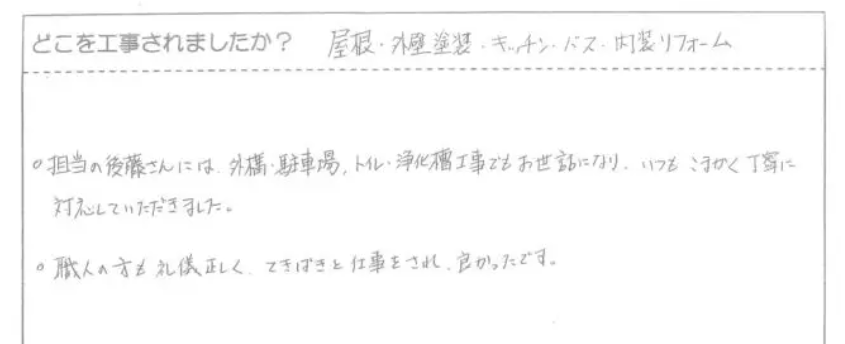 どこを工事されましたか？ 屋根・外壁塗装・キッチン・バス・内装リフォーム
○担当の後藤さんには、外構・駐車場、トイレ・浄化槽工事でもお世話になり、いつもこまかく丁寧に
対応していただきました。
○職人の方も礼儀正しく、てきぱきと仕事をされ、良かったです。